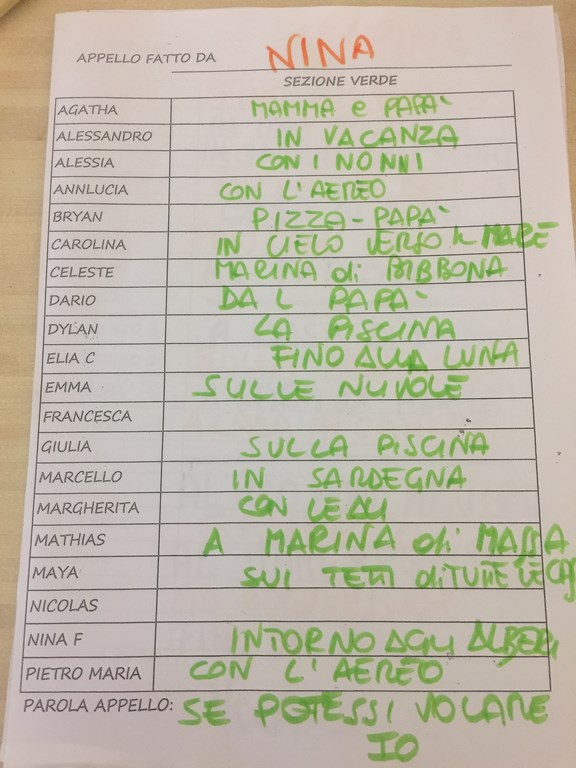 APPELLO FATTO DA NINA
SEZIONE VERDE
AGATHA MAMMA e PAPA`
ALESSANDRO IN VACANZA
ALESSIA CON I NONNI
ANNLUCIA CON L'AEREO
BRYAN PIZZA-PAPA`
CAROLINA IN CIELO VERSO IL MARE
CELESTE MARINA di BIBBONA
DARIO DA L PAPA`
DYLAN LA PISCINA
ELIA C FINO ALLA LUNA
EMMA SULLE NUVOLE
FRANCESCA
GIULIA SULLA PISCINA
MARCELLO IN SARDEGNA
MARGHERITA CON LE ALI
MATHIAS A MARINA di MASSA
MAYA SUI TETTI di TUTTE LE CASE
NICOLAS
NINA F INTORNO AGLI ALBERI
PIETRO MARIA CON L'AEREO
PAROLA APPELLO: SE POTESSI VOLARE
IO